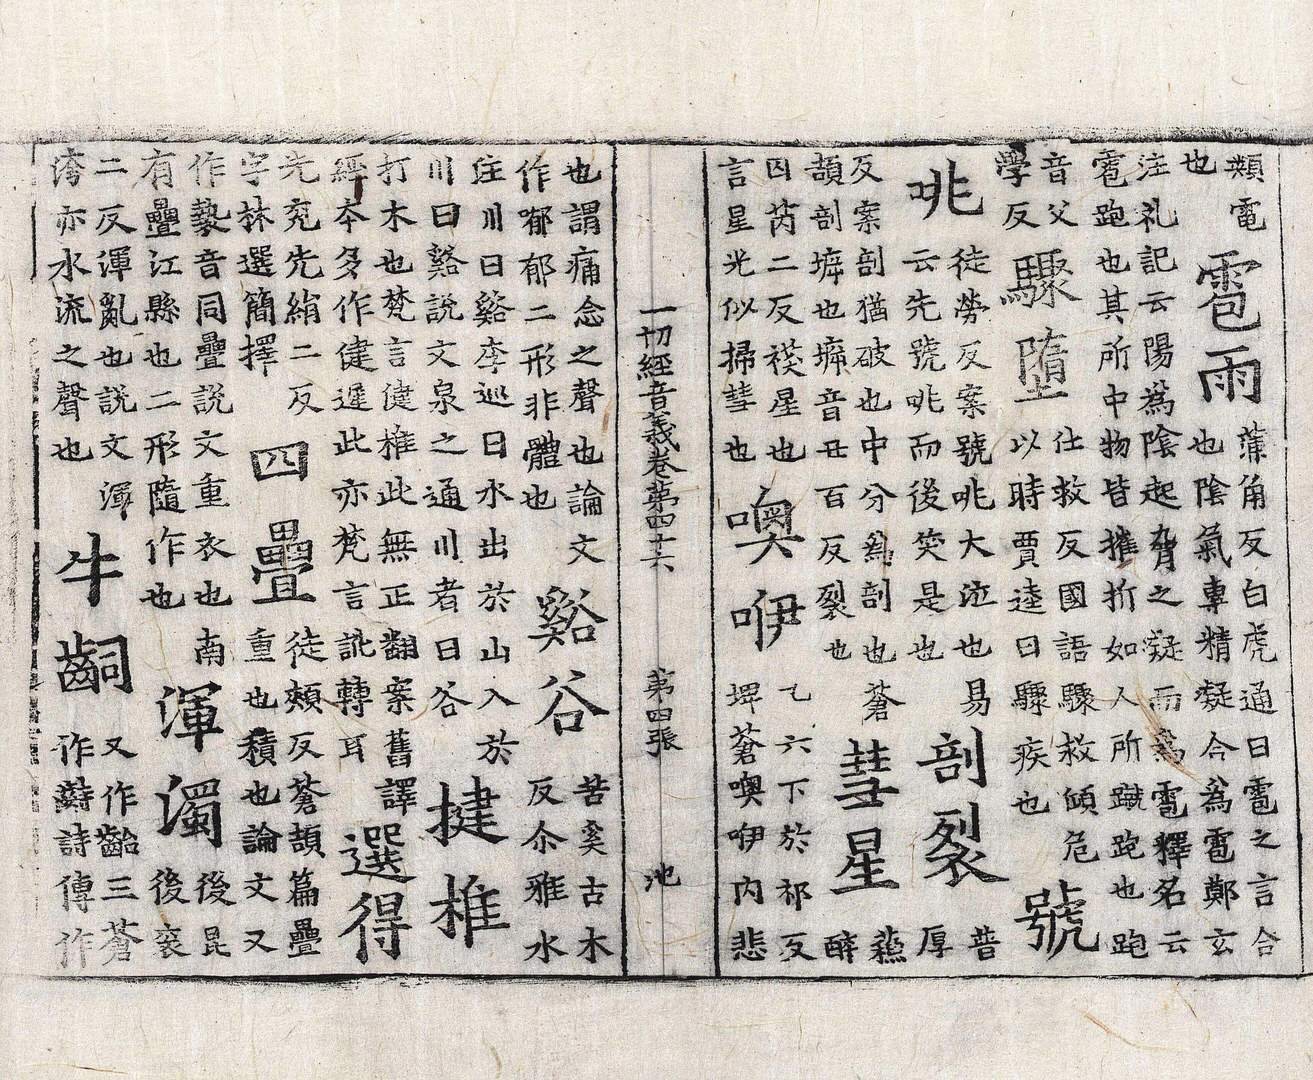 類電
也
雹雨
蒲角反白虎通曰雹之言合
也陰氣專精凝合為雹鄭玄
注礼記云陽為陰起脅之凝而為雹釋名云
雹跑也其所中物皆摧折如人所蹴跑也跑
音父
學反
驟墮
仕救反國語驟救傾危
以時賈逵曰驟疾也
號
咷
徒勞反案號咷大泣也易
云先號咷而後笑是也
剖裂
普
厚
反案剖猶破也中分為剖也蒼
頡剖㡿也音丑百反裂也
彗星
蘓
醉
囚芮二反祅星也
言星光似掃彗也
噢咿
乙六下於祁反
埤蒼噢咿内悲
一切經音義卷第四十六 第四張 池
也謂痛念之聲也論文
作喐郁二形非體也
谿谷
苦奚古木
反尒雅水
注川曰谿李巡曰水出於山入於
川曰谿說文泉之通川者曰谷
揵椎
打木也梵言揵椎此無正翻案舊譯
經夲多作揵遲此亦梵言訛轉耳
選得
先兖先絹二反
字林選簡擇
四疊
徒頰反蒼頡篇疊
重也積也論文又
作褺音同疊說文重衣也南
有疊江縣也二形隨作也
渾濁
後昆
後衮
二反渾亂也說文渾
洿亦水流之聲也
牛齝
又作齝三蒼
作詩傳作